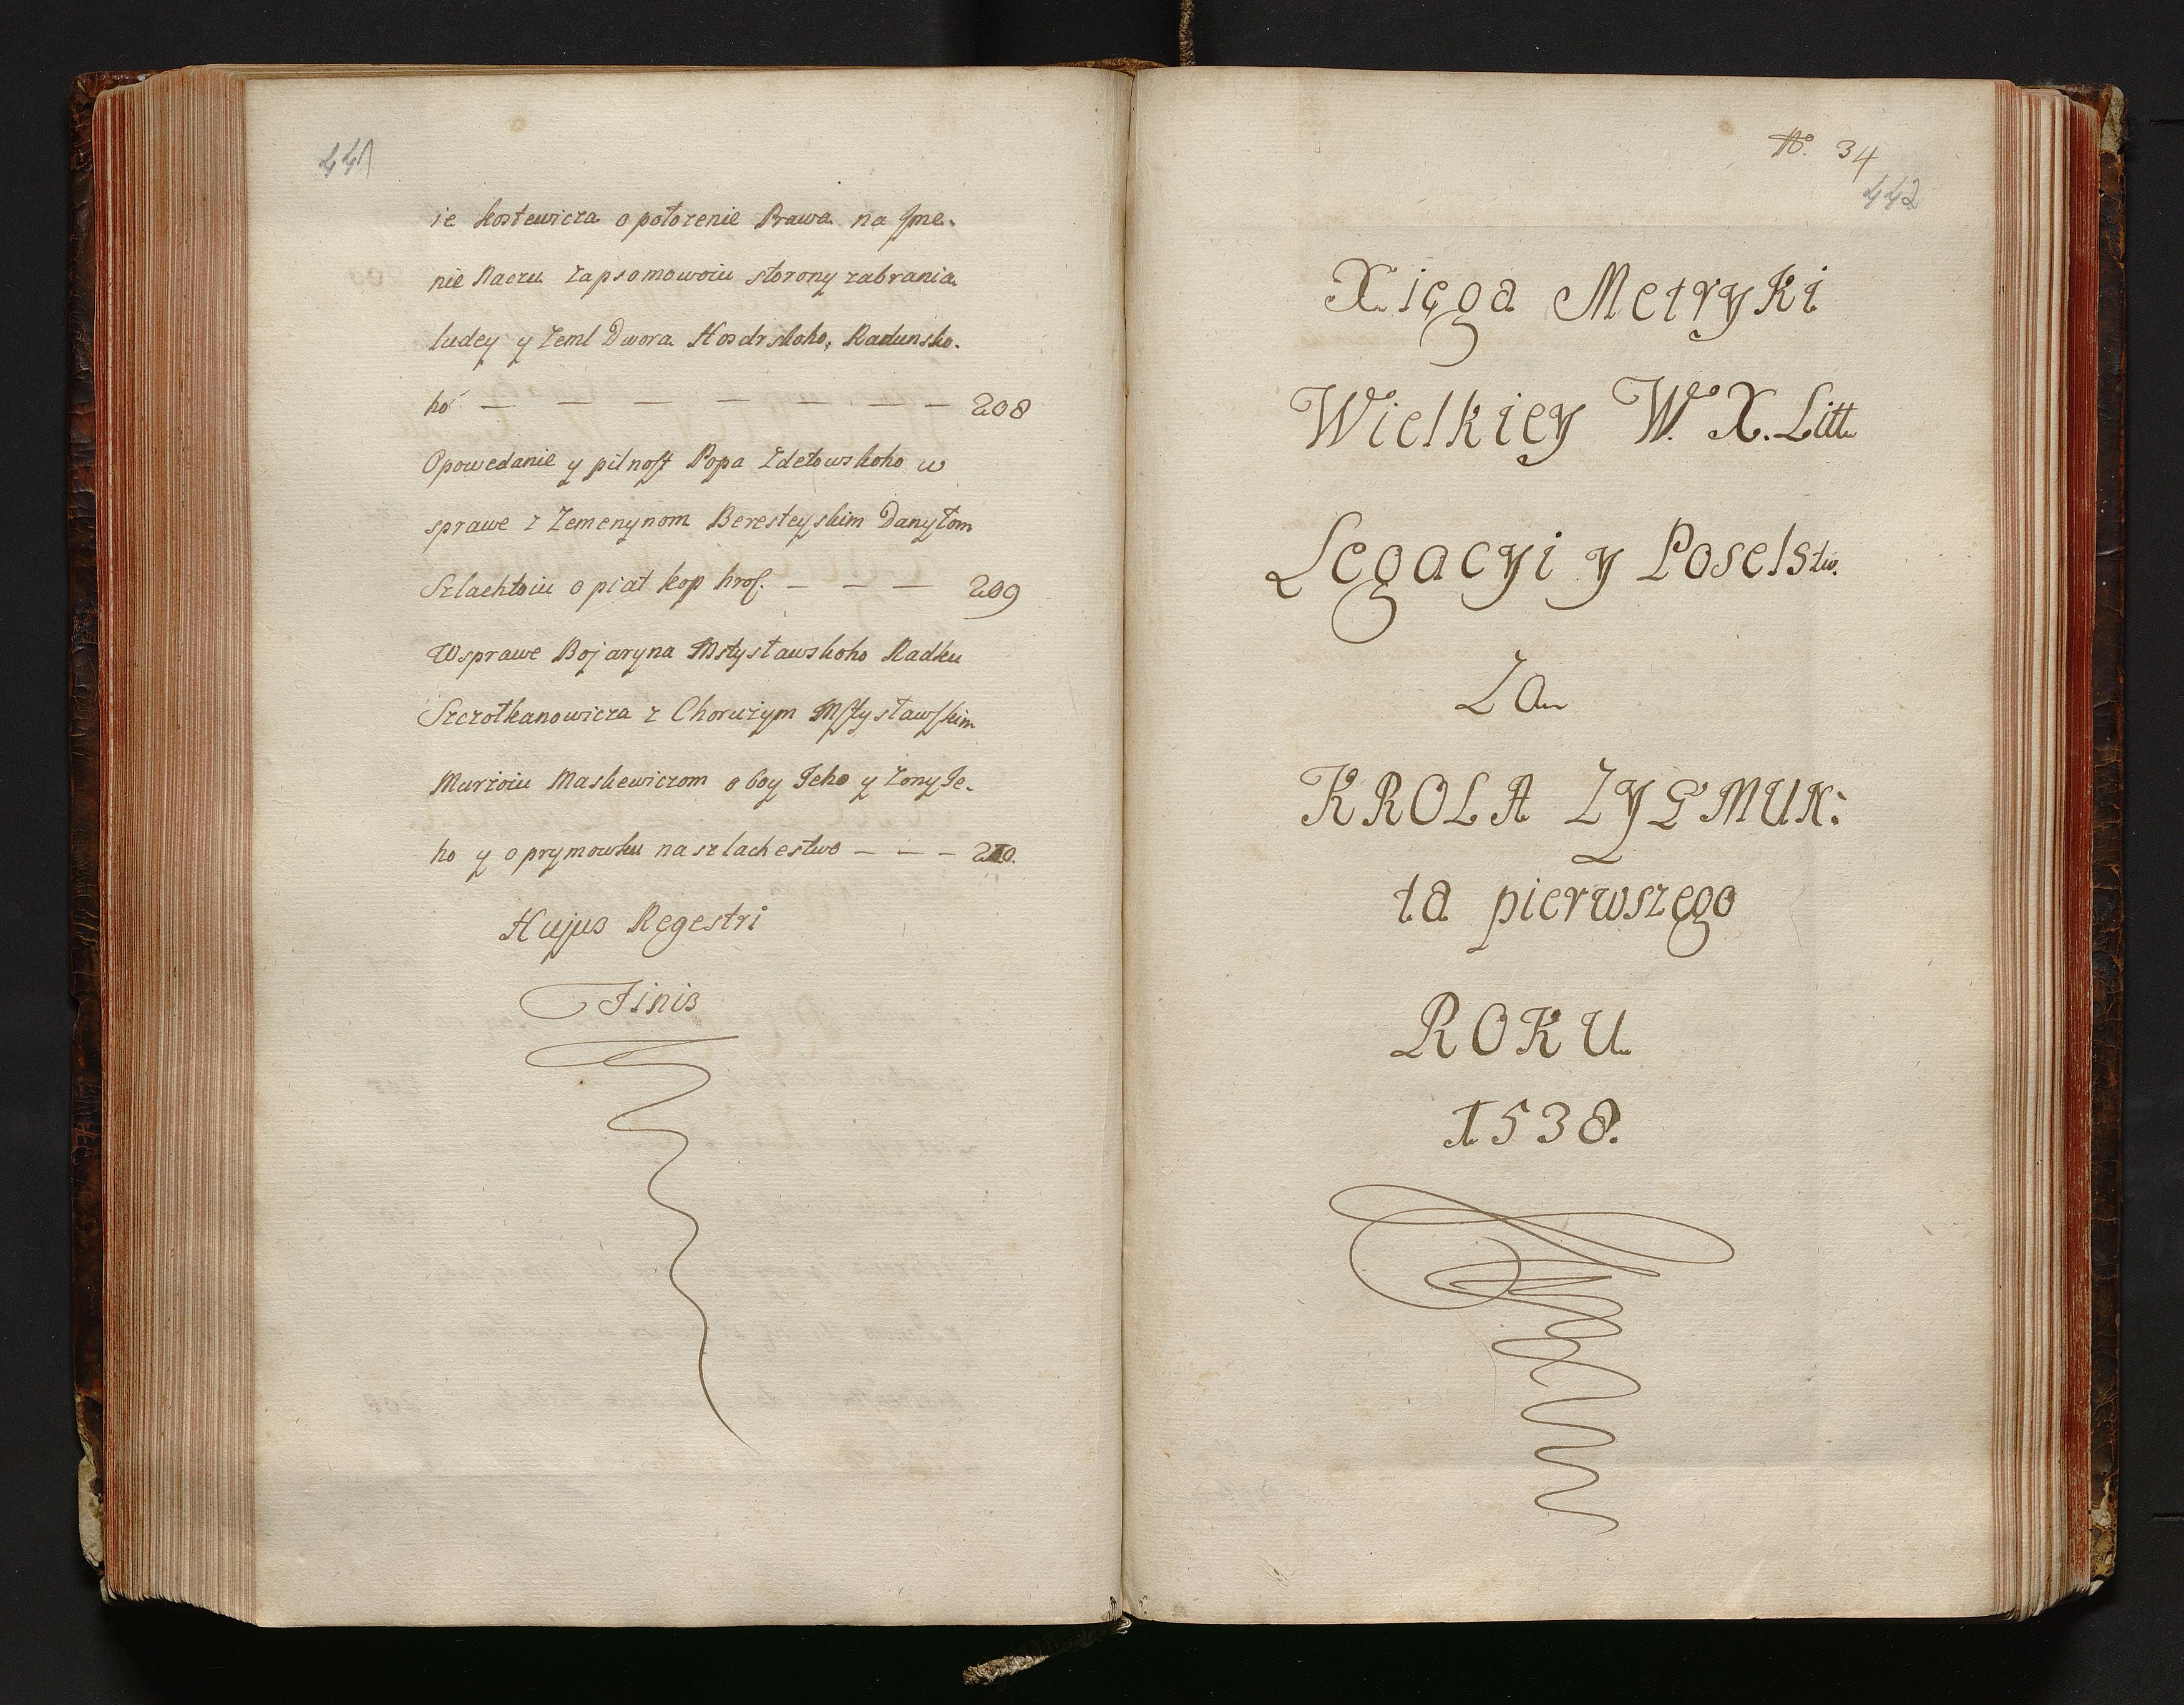 441
ie Kostewicza o położenie Prawa na Jme-
nie Naczu Zapsomowoiu storony zabrania
ludey y Zeml Dwora Hosdrskoho, Radunsko-
ho — — — — — — — 208
Opowedanie y pilnost Popa Zdetowskoho w
sprawe z Zemenynom Beresteyskim Danyłom
Szlachtoiu o piat kop hrosz. — — — 209
W sprawe Bojaryna Mstysławskoho Radku
Szczotkanowicza z Chorużym Mstysławskim
Murżoiu Maskewiczom o boy Jeho y Żony Je-
ho y o prymowku na szlachestwo — — — 210.
Hujus Regestri
Finis
No. 34
442
Xięga Metryki
Wielkiey W. X. Litt.
Legacyi y Poselstw.
Za
KROLA ZYGMUN:
ta pierwszego
ROKU
1538.